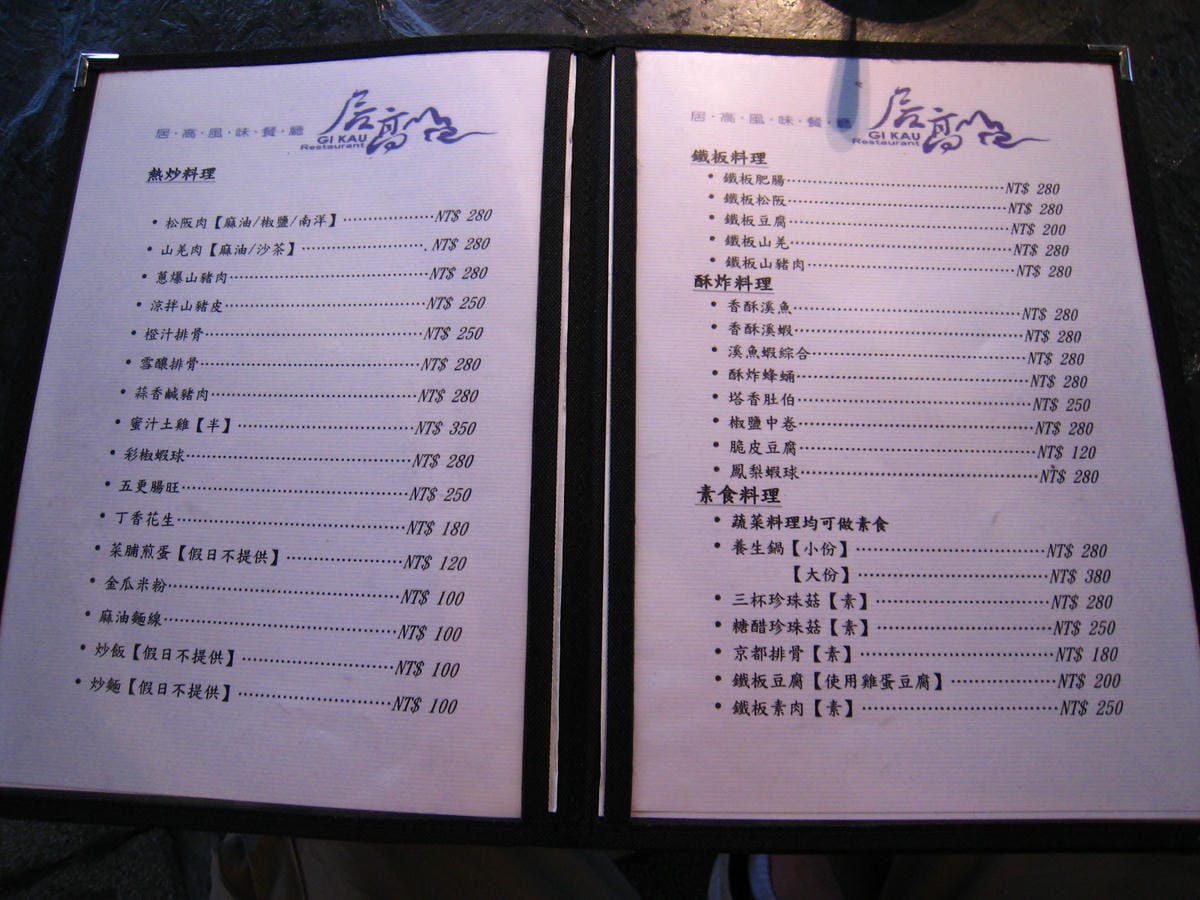 居·高·風·味·餐·廳
居高臨
GI KAU
Restaurant
熱炒料理
• 松阪肉【麻油/椒鹽/南洋】 NT$ 280
• 山羌肉【麻油/沙茶】 NT$ 280
• 蔥爆山豬肉 NT$ 280
• 涼拌山豬皮 NT$ 250
• 橙汁排骨 NT$ 250
• 雪釀排骨 NT$ 280
• 蒜香鹹豬肉 NT$ 280
• 蜜汁土雞【半】 NT$ 350
• 彩椒蝦球 NT$ 280
• 五更腸旺 NT$ 250
• 丁香花生 NT$ 180
• 菜脯煎蛋【假日不提供】 NT$ 120
• 金瓜米粉 NT$ 100
• 麻油麵線 NT$ 100
• 炒飯【假日不提供】 NT$ 100
• 炒麵【假日不提供】 NT$ 100
居·高·風·味·餐·廳
居高臨
GI KAU
Restaurant
鐵板料理
• 鐵板肥腸 NT$ 280
• 鐵板松阪 NT$ 280
• 鐵板豆腐 NT$ 200
• 鐵板山羌 NT$ 280
• 鐵板山豬肉 NT$ 280
酥炸料理
• 香酥溪魚 NT$ 280
• 香酥溪蝦 NT$ 280
• 溪魚蝦綜合 NT$ 280
• 酥炸蜂蛹 NT$ 280
• 塔香肚伯 NT$ 250
• 椒鹽中卷 NT$ 280
• 脆皮豆腐 NT$ 120
• 鳳梨蝦球 NT$ 280
素食料理
• 蔬菜料理均可做素食
• 養生鍋【小份】 NT$ 280
【大份】 NT$ 380
• 三杯珍珠菇【素】 NT$ 280
• 糖醋珍珠菇【素】 NT$ 250
• 京都排骨【素】 NT$ 180
• 鐵板豆腐【使用雞蛋豆腐】 NT$ 200
• 鐵板素肉【素】 NT$ 250